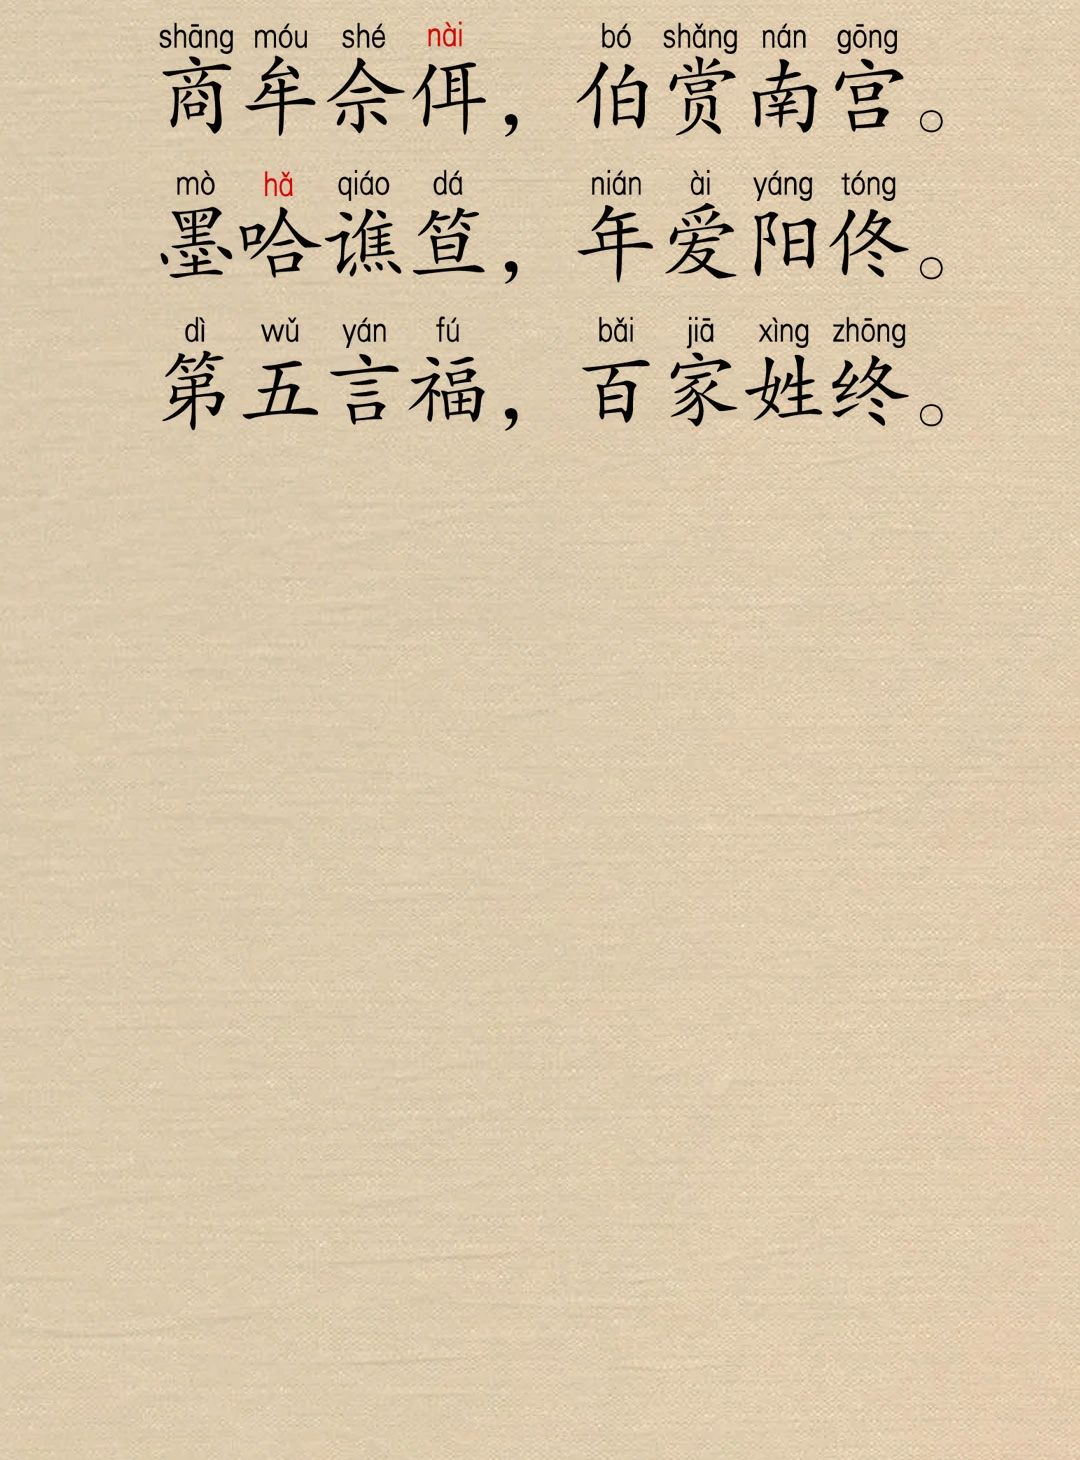 shāng móu shé nài bó shǎng nán gōng
商牟佘佴，伯赏南宫。
mò hǎ qiáo dá nián ài yáng tóng
墨哈谯笪，年爱阳佟。
dì wǔ yán fú bǎi jiā xìng zhōng
第五言福，百家姓终。